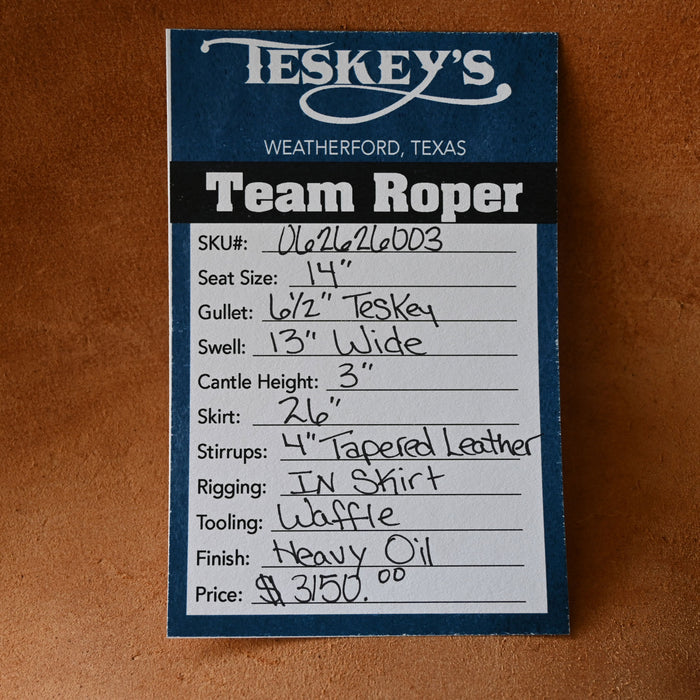 TESKEY'S
WEATHERFORD, TEXAS
Team Roper
SKU#: 062626003
Seat Size: 14"
Gullet: 6 1/2" Teskey
Swell: 13" Wide
Cantle Height: 3"
Skirt: 26"
Stirrups: 4" Tapered Leather
Rigging: IN Skirt
Tooling: Waffle
Finish: Heavy Oil
Price: $3150.00